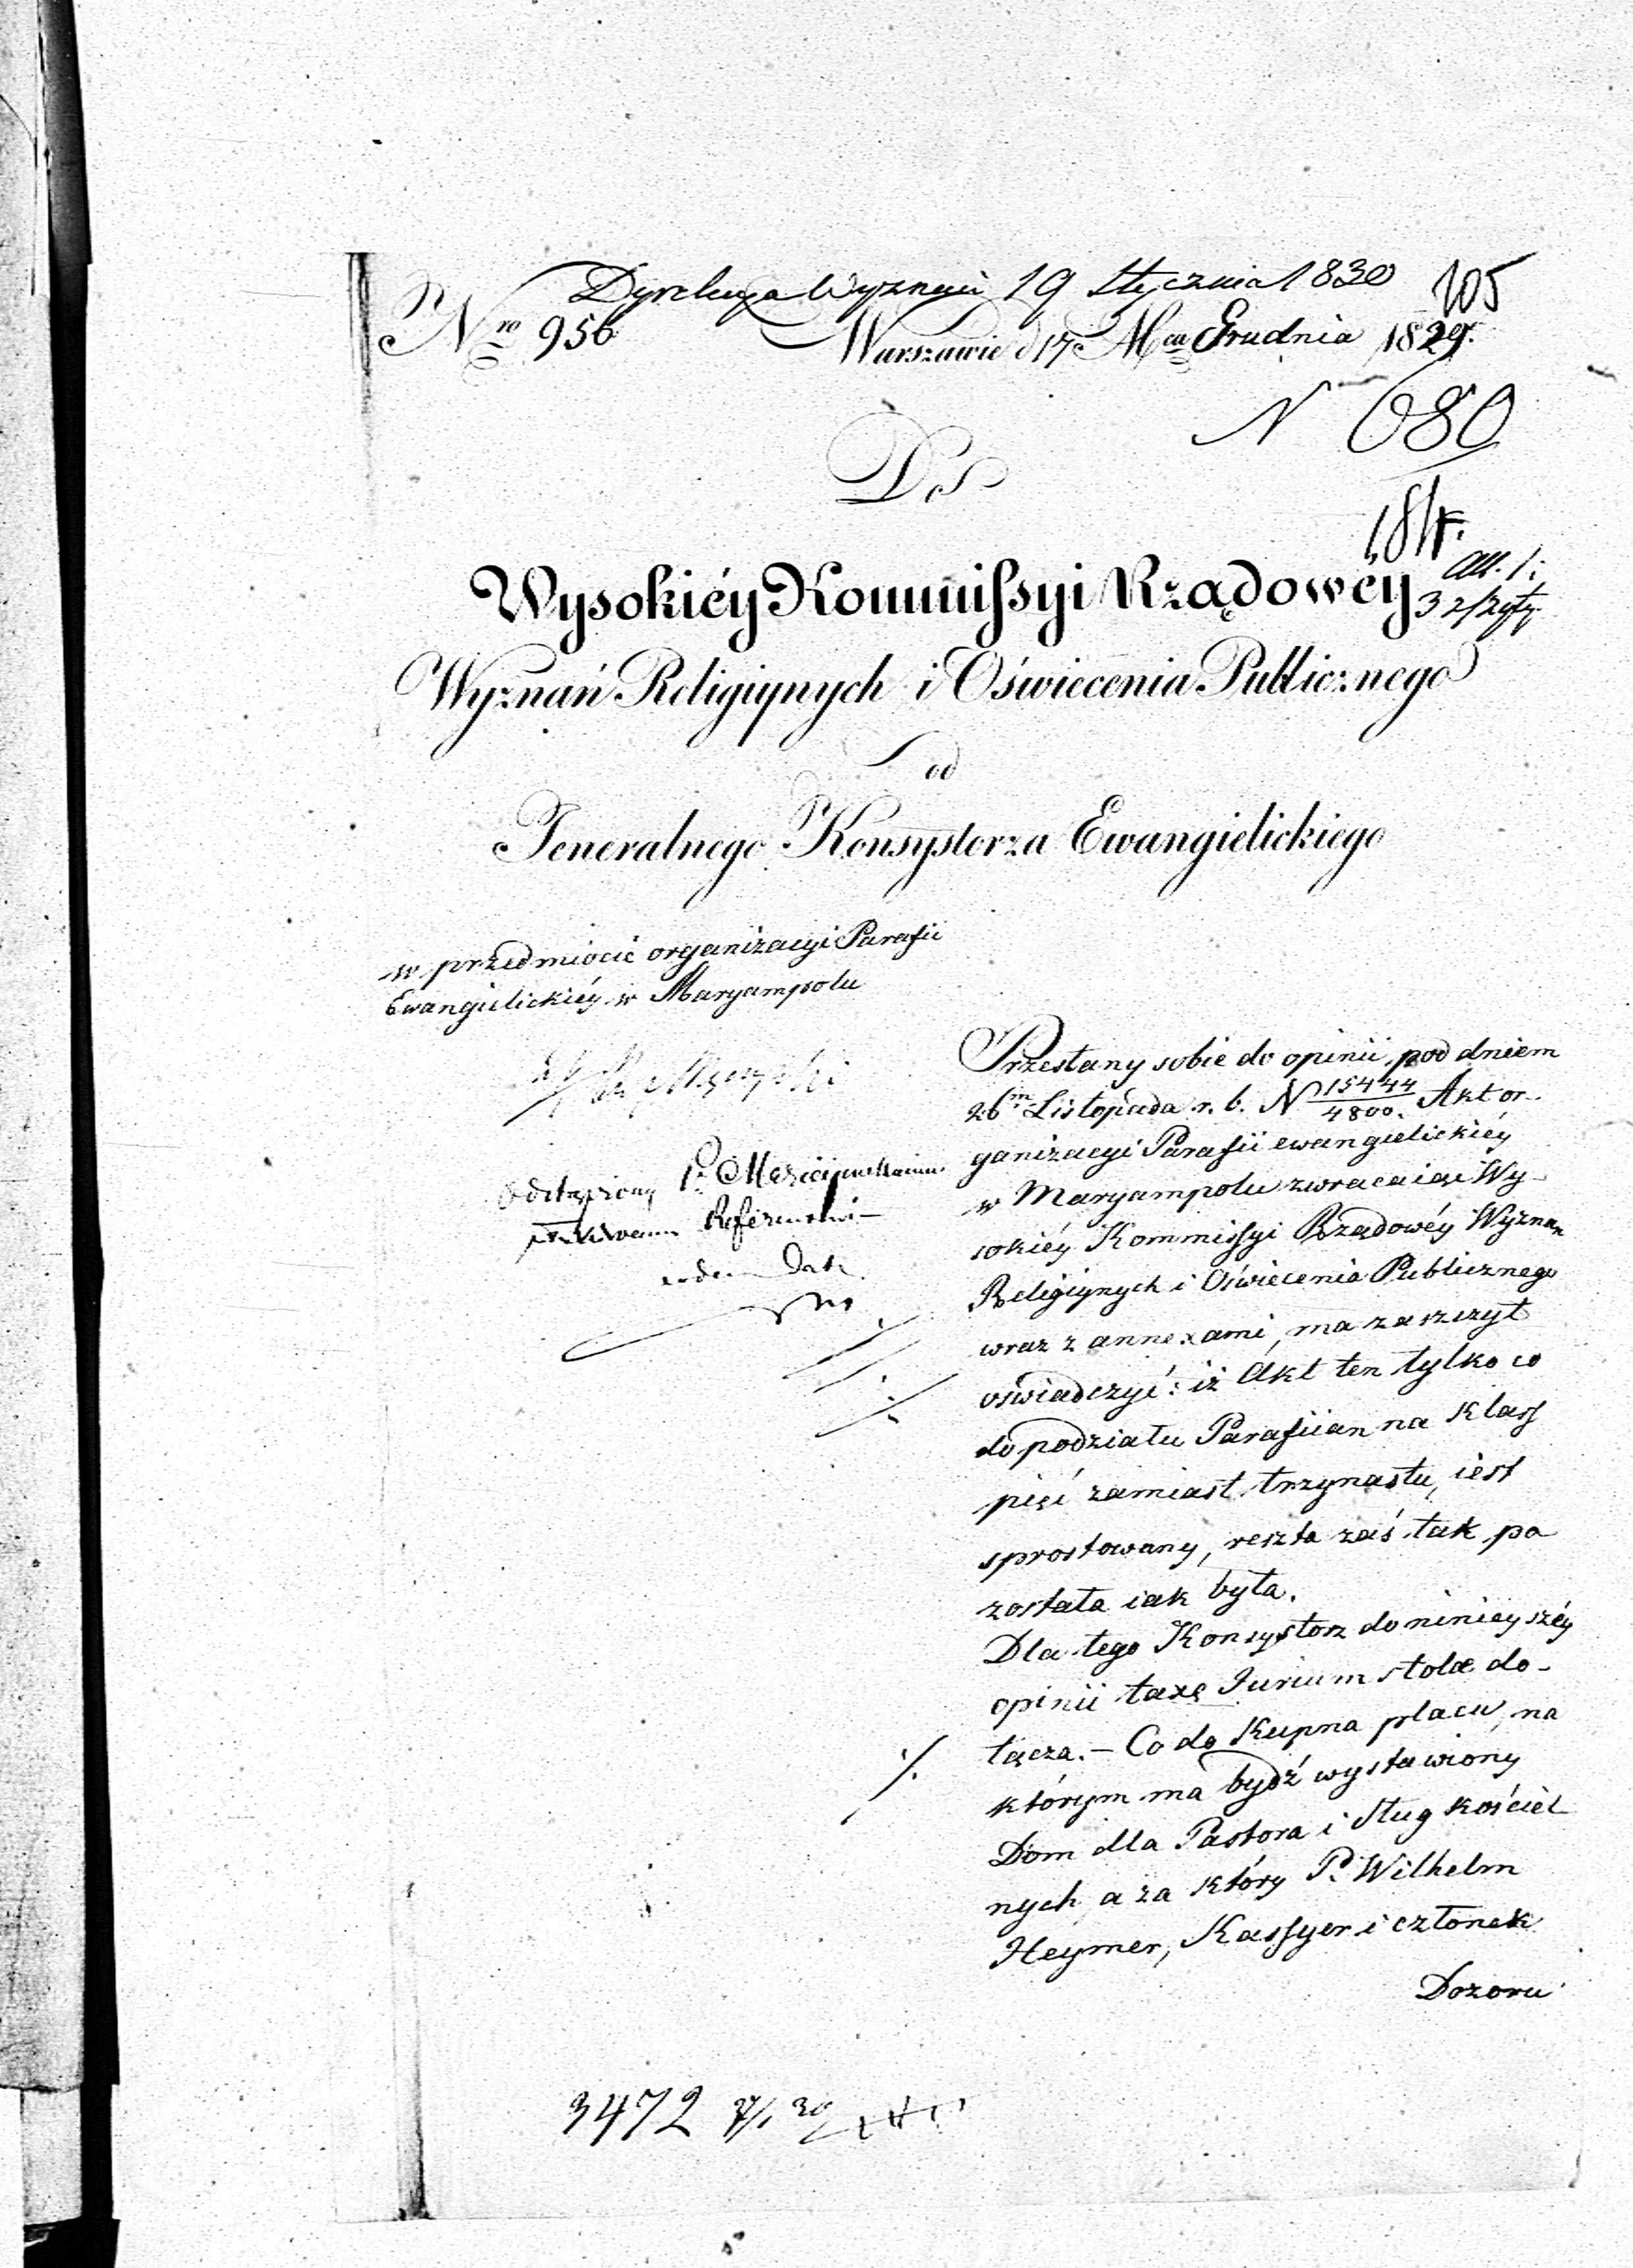 Dyrekcya Wyznań 19 Stycznia 1830
105
Nro 956 Warszawie d 17 Mca Grudnia 1829.
N 680
Do
184.
All. 1.
Wysokiéy Kommissyi Rządowéy
3 zszyty.
Wyznań Religiynych i Oświecenia Publicznego
od
Jeneralnego Konsystorza Ewangielickiego
w przedmiocie organizacyi Parafii
Ewangielickiéy w Maryampolu
Przesłany sobie do opinii pod dniem
26m Listopada r. b. N 15444/4800. Akt or-
ganizacyi Parafii ewangielickiéy
w Maryampolu zwracaiąc Wy-
sokiéy Kommissyi Rządowéy Wyznań
Religiynych i Oświecenia Publicznego
wraz z annexami, ma zaszczyt
oświadczyć: iż Akt ten tylko co
do podziału Parafiian na klass
pięć zamiast trzynastu, iest
sprostowany, reszta zaś tak po
została iak była.
Dla tego Konsystorz do ninieyszéy
opinii taxę Jurium stolæ do-
łącza. – Co do Kupna placu, na
którym ma bydź wystawiony
Dom dla Pastora i sług kościel
nych a za który P. Wilhelm
Heymer, Kassyer i członek
Dozoru
Odstąpiony
Referentowi
3472